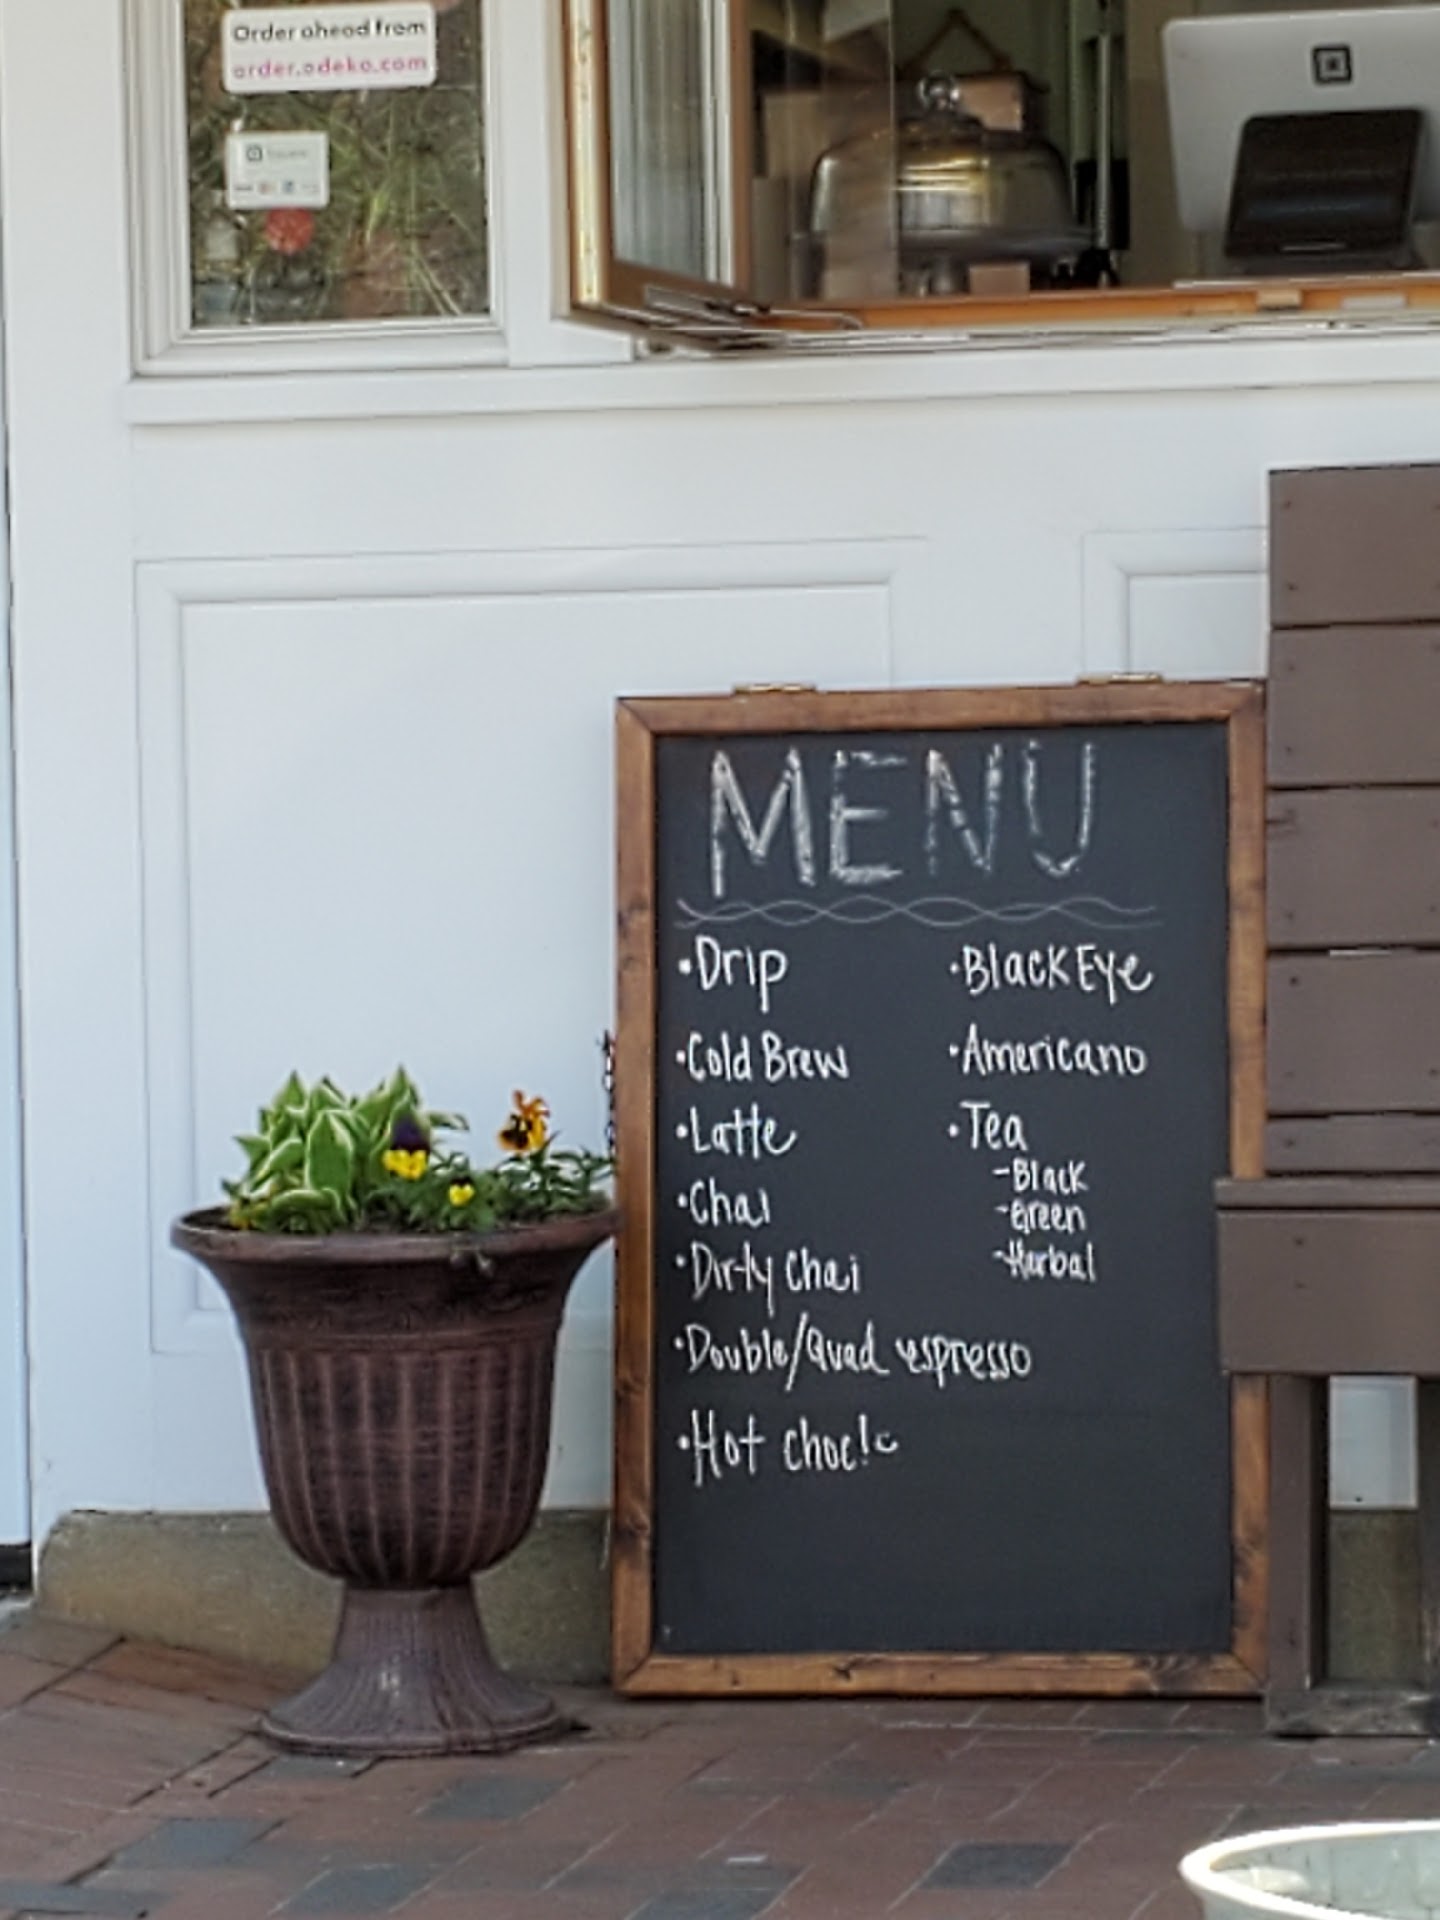 Order ahead from
order.odeko.com
Square
MENU
•Drip
•Cold Brew
•Latte
•Chai
•Dirty Chai
•Double/Quad espresso
•Hot choc!
•Black Eye
•Americano
•Tea
-Black
-Green
-Herbal